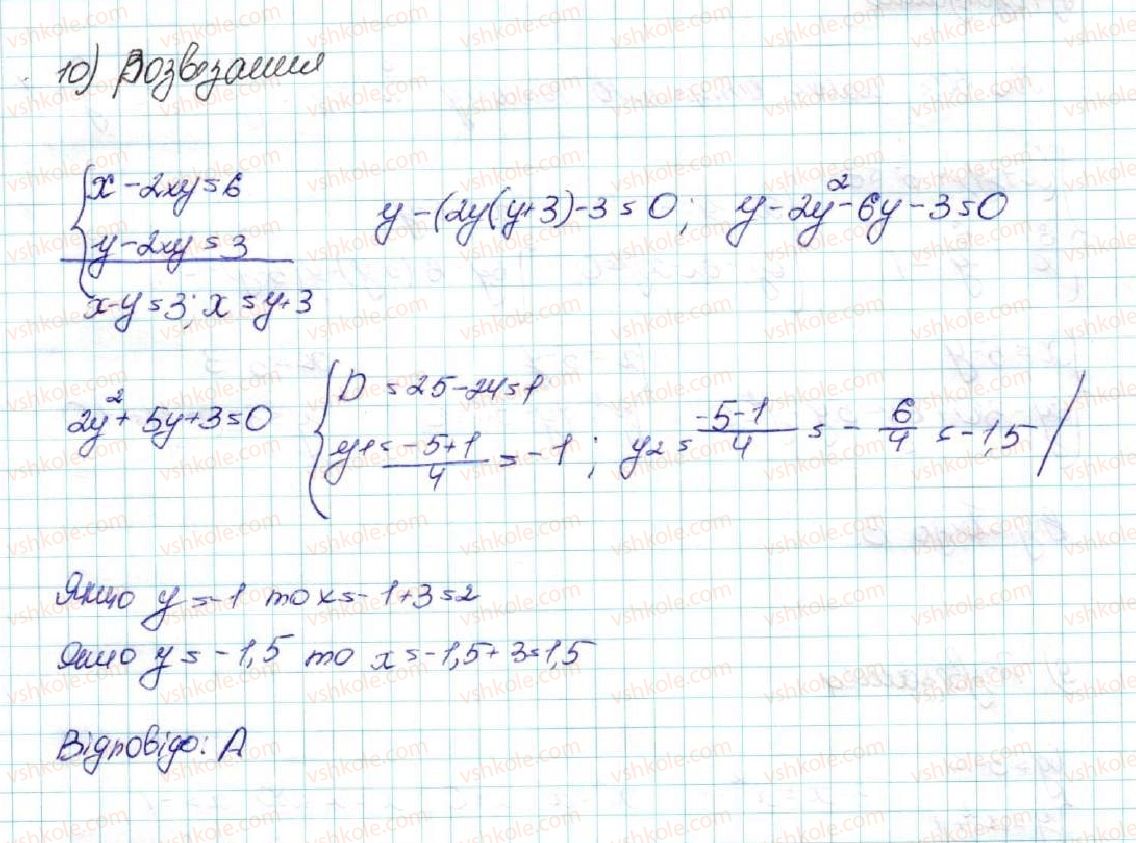 10) Розвезання
x - 2xy = 6
y - 2xy = 3
x - y = 3; x = y + 3
y - (2y(y+3) - 3 = 0; y - 2y² - 6y - 3 = 0
2y² + 5y + 3 = 0
D = 25 - 24 = 1
y1 = (-5+1)/4 = -1; y2 = (-5-1)/4 = - 6/4 = -1,5 /
Якщо y = -1 то x = -1 + 3 = 2
Якшо y = -1,5 то x = -1,5 + 3 = 1,5
Відповідь: А
vshkole.com